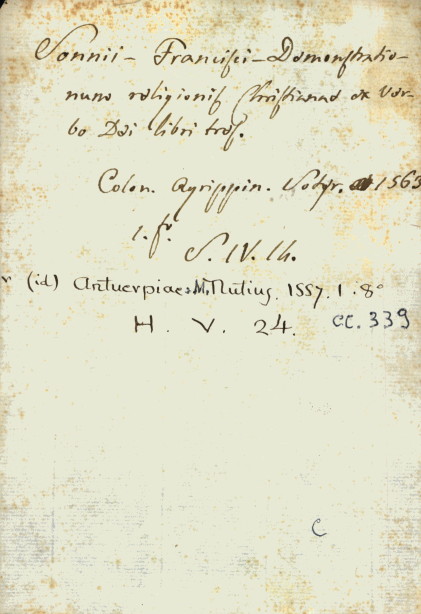 Sonnii - Francisci - Demonstratio-
num religionis Christianae ex Ver-
bo Dei libri tres.
Colon. Agrippin. 1563
1. fr.
S. IV. th.
(id) Antuerpiae M. Nutius. 1557. 1. 8°
H. V. 24. cc. 339
C